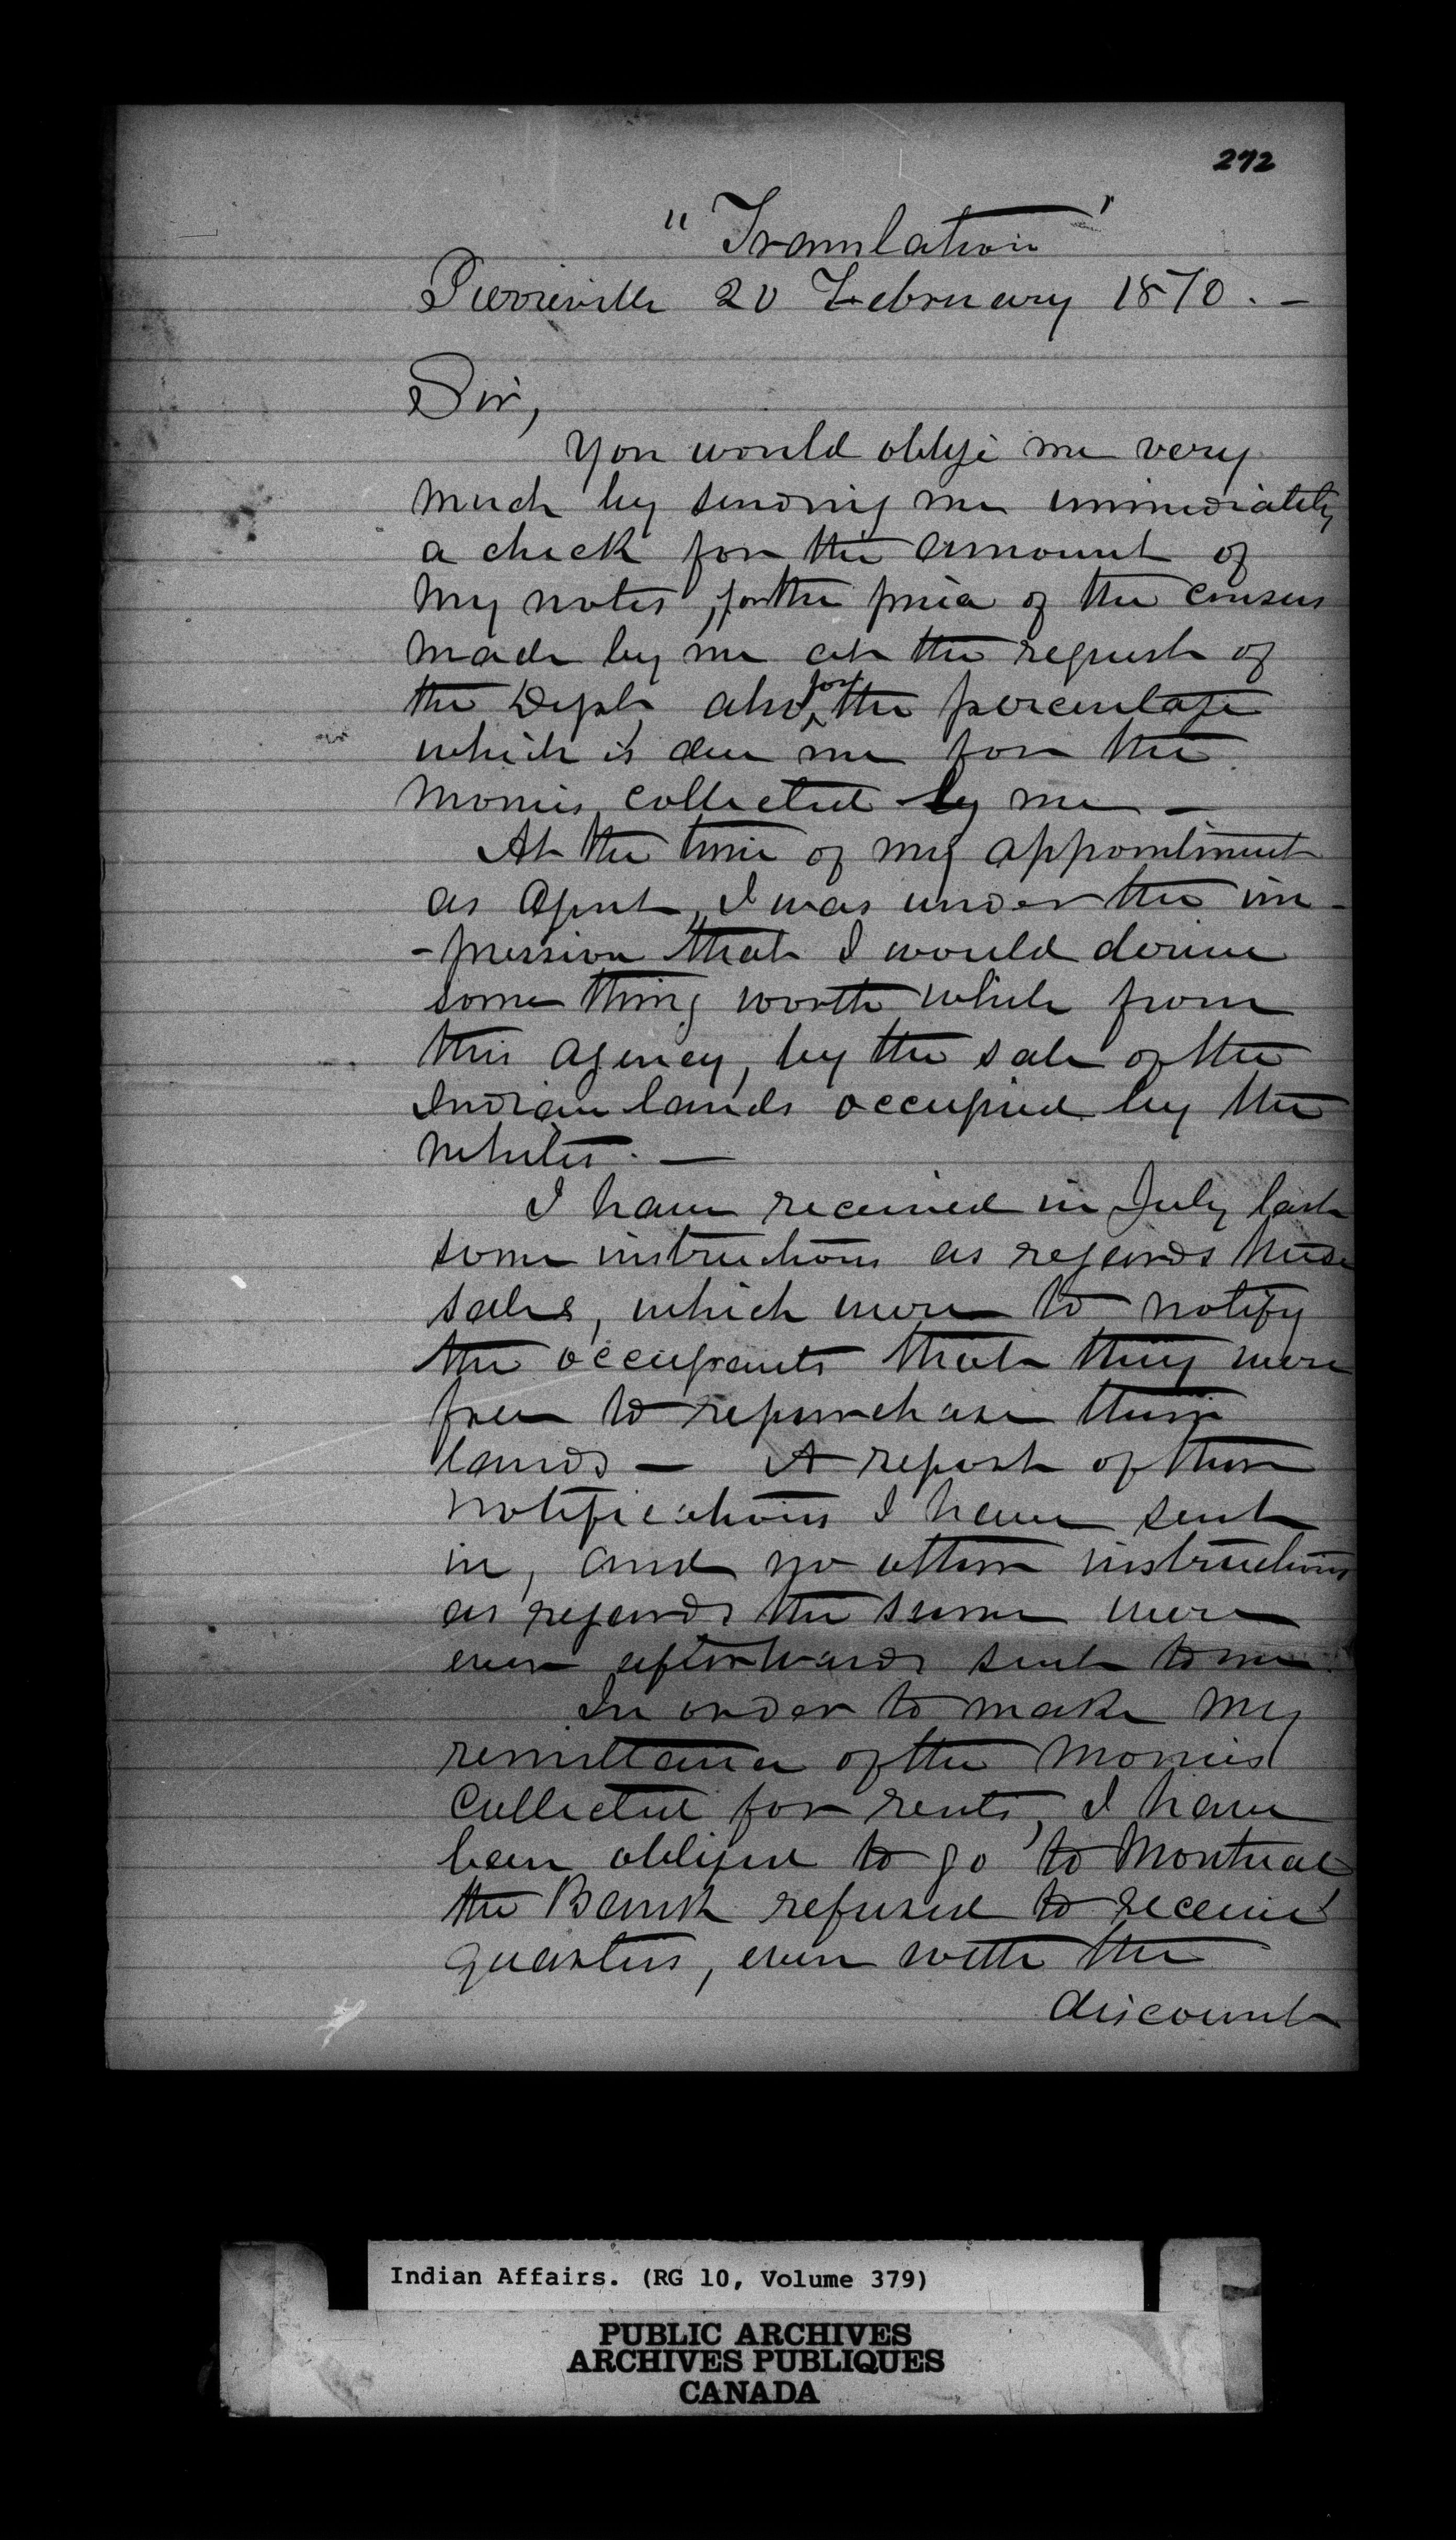 272
"Translation"
Pierreville 20 February 1870. -
Sir,
You would oblige me very
much by sending me immediately
a check for the amount of
my notes, for the price of the census
made by me at the request of
the Dept, also for the percentage
which is due me for the
monies collected by me -
At the time of my appointment
as Agent, I was under the im-
-pression that I would derive
some thing worth while from
this agency, by the sale of the
Indian lands occupied by the
whites. -
I have received in July last
some instructions as regards these
sales, which were to notify
the occupants that they were
free to repurchase their
lands - A report of these
notifications I have sent
in, and no other instructions
as regards the same were
ever afterwards sent to me.
In order to make my
remittance of the monies
collected for rents, I have
been obliged to go to Montreal
the Bank refused to receive
quarters, even with the
discount
Indian Affairs. (RG 10, Volume 379)
PUBLIC ARCHIVES
ARCHIVES PUBLIQUES
CANADA